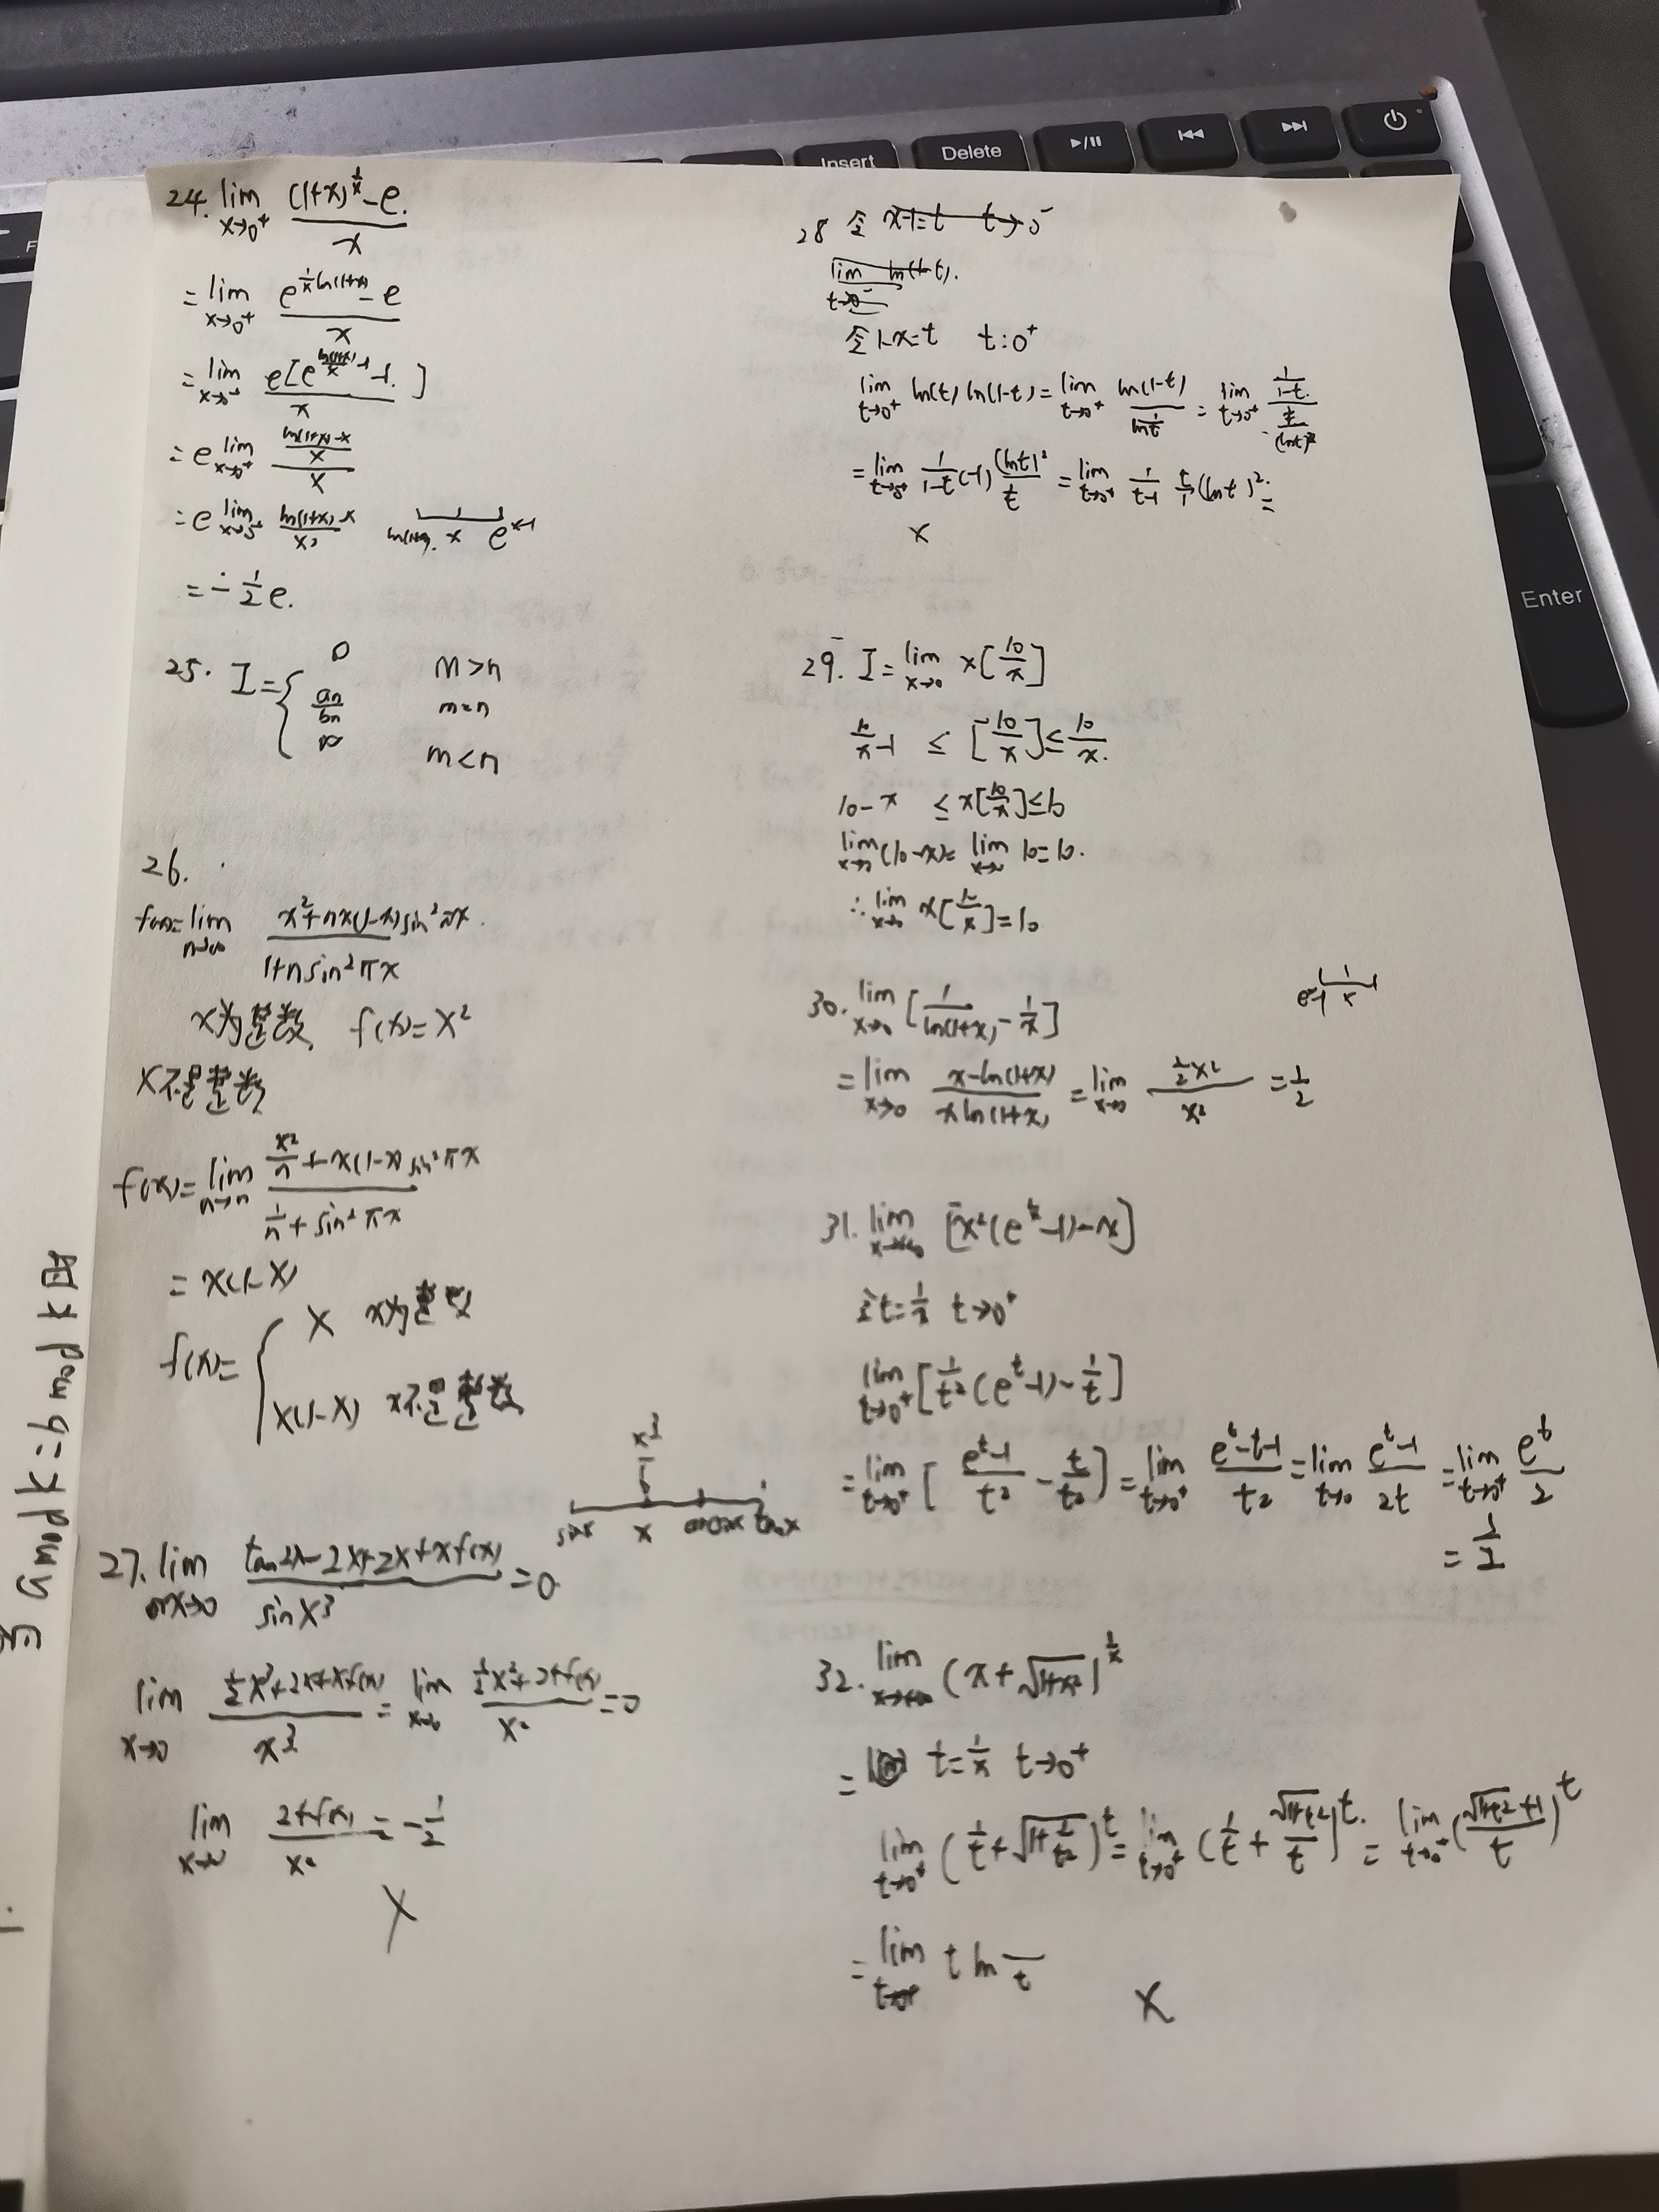 Insert
Delete
Enter
24. lim x→0⁺ ((1+x)^(1/x) - e.)/x
= lim x→0⁺ (e^(1/x ln(1+x)) - e)/x
= lim x→0⁺ e[e^(ln(1+x)/x - 1) - 1.]/x
= e lim x→0⁺ ((ln(1+x)-x)/x)/x
= e lim x→0⁺ (ln(1+x)-x)/x² ln(1+x). x e^x-1
= -1/2 e.
25. I = { 0 m>n
an/bn m=n
∞ m<n
26.
f(x)=lim n→∞ (x²+nx(1-x)sin²πx.)/(1+nsin²πx)
x为整数, f(x)=x²
x不是整数
f(x)=lim n→∞ (x²/n + x(1-x)sin²πx)/(1/n + sin²πx)
= x(1-x)
f(x)= { x x为整数
x(1-x) x不是整数
x³/6
sinx x arcsinx tanx
27. lim x→0 (tan2x-2x+2x+xf(x))/sinx³ =0
lim x→0 (1/2x³+2x+xf(x))/x³ = lim x→0 (1/2x²+2+f(x))/x² =0
lim x→0 (2+f(x))/x² = -1/2
X
28 令 x-1=t t→0⁻
lim t→0⁻ ln(-t).
令1-x=t t:0⁺
lim t→0⁺ ln(t) ln(1-t) = lim t→0⁺ ln(1-t)/(1/lnt) = lim t→0⁺ (1/(1-t))/(-(1/t)/(lnt)²)
= lim t→0⁺ 1/(1-t) (-1) (lnt)²/t = lim t→0⁺ 1/(t-1) t/1 (lnt)² =
x
29. I = lim x→0 x[10/x]
10/x -1 ≤ [10/x] ≤ 10/x.
10-x ≤ x[10/x] ≤ 10
lim x→0 (10-x) = lim x→0 10=10.
∴ lim x→0 x[10/x]=10
30. lim x→0 [1/ln(1+x) - 1/x]
= lim x→0 (x-ln(1+x))/(xln(1+x)) = lim x→0 (1/2x²)/x² = 1/2
31. lim x→+∞ [x²(e^(1/x)-1)-x]
令t=1/x t→0⁺
lim t→0⁺ [1/t²(e^t-1) - 1/t]
= lim t→0⁺ [(e^t-1)/t² - t/t²] = lim t→0⁺ (e^t-t-1)/t² = lim t→0 (e^t-1)/2t = lim t→0⁺ e^t/2
= 1/2
32. lim x→+∞ (x+√(1+x²))^(1/x)
= t=1/x t→0⁺
lim t→0⁺ (1/t+√(1+1/t²))^t = lim t→0⁺ (1/t + √(1+t²)/t)^t. = lim t→0⁺ ((√(1+t²)+1)/t)^t
= lim t→0⁺ t ln —/t
X